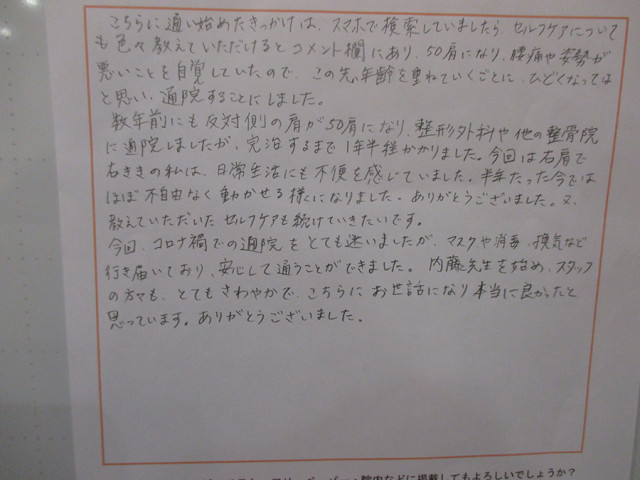 こちらに通い始めたきっかけは、スマホで検索していましたら、セルフケアについて
も色々教えていただけるとコメント欄にあり、50肩になり、腰痛や姿勢が
悪いことを自覚していたので、この先年齢を重ねていくごとに、ひどくなっては
と思い、通院することにしました。
数年前にも反対側の肩が50肩になり、整形外科や他の整骨院
に通院しましたが、完治するまで1年半程かかりました。今回は右肩で
右ききの私は、日常生活にも不便を感じていました。半年たった今では
ほぼ不自由なく動かせる様になりました。ありがとうございました。又、
教えていただいたセルフケアも続けていきたいです。
今回、コロナ禍での通院をとても迷いましたが、マスクや消毒、換気など
行き届いており、安心して通うことができました。内藤先生を始め、スタッフ
の方々も、とてもさわやかで、こちらにお世話になり本当に良かったと
思っています。ありがとうございました。
院内などに掲載してもよろしいでしょうか？